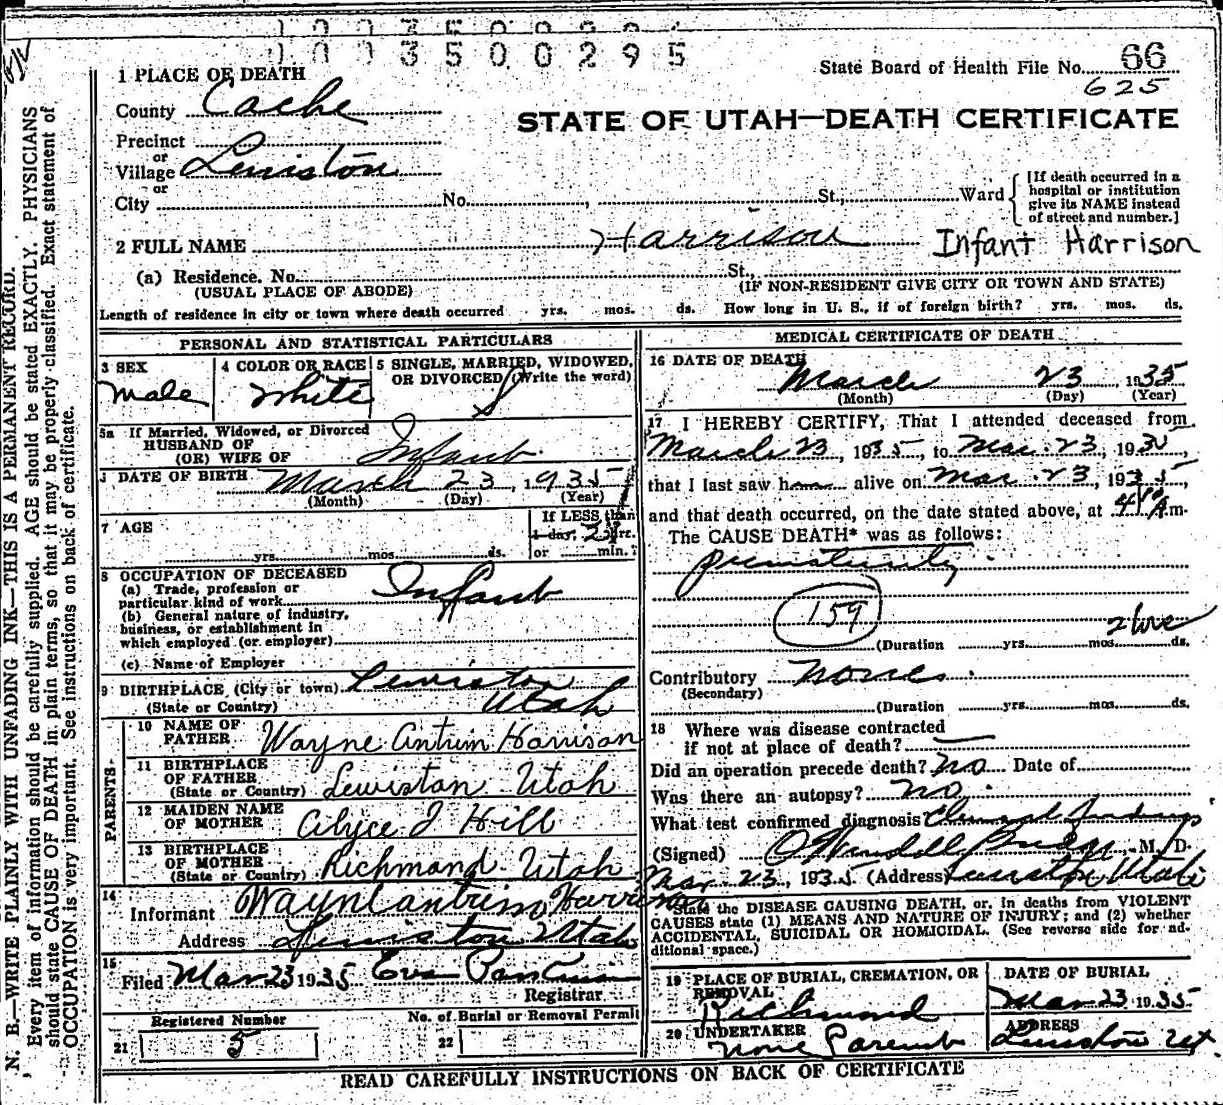 1003500295
State Board of Health File No. 66
625
1 PLACE OF DEATH
County Cache
STATE OF UTAH—DEATH CERTIFICATE
Precinct
or
Village Lewiston
or
City No. , St., Ward
[If death occurred in a
hospital or institution
give its NAME instead
of street and number.]
2 FULL NAME Harrison Infant Harrison
(a) Residence. No. St.,
(USUAL PLACE OF ABODE) (IF NON-RESIDENT GIVE CITY OR TOWN AND STATE)
Length of residence in city or town where death occurred yrs. mos. ds. How long in U. S., if of foreign birth? yrs. mos. ds.
PERSONAL AND STATISTICAL PARTICULARS
3 SEX 4 COLOR OR RACE 5 SINGLE, MARRIED, WIDOWED,
OR DIVORCED (Write the word)
Male White S
5a If Married, Widowed, or Divorced
HUSBAND OF
(OR) WIFE OF Infant
DATE OF BIRTH March 23, 1935
(Month) (Day) (Year)
7 AGE If LESS than
1 day, 2 hrs.
yrs. mos. ds. or min.?
8 OCCUPATION OF DECEASED
(a) Trade, profession or
particular kind of work Infant
(b) General nature of industry,
business, or establishment in
which employed (or employer)
(c) Name of Employer
9 BIRTHPLACE (City or town) Lewiston
(State or Country) Utah
PARENTS
10 NAME OF
FATHER Wayne Antrim Harrison
11 BIRTHPLACE
OF FATHER
(State or Country) Lewiston Utah
12 MAIDEN NAME
OF MOTHER Alyce J Hill
13 BIRTHPLACE
OF MOTHER
(State or Country) Richmond, Utah
14
Informant Wayne Antrim Harrison
Address Lewiston Utah
15
Filed Mar 23 1935 Eva
Registrar
Registered Number No. of Burial or Removal Permit
21 5 22
MEDICAL CERTIFICATE OF DEATH
16 DATE OF DEATH
March 23, 1935
(Month) (Day) (Year)
17 I HEREBY CERTIFY, That I attended deceased from
March 23, 1935, to Mar. 23, 1935,
that I last saw h alive on Mar. 23, 1935,
and that death occurred, on the date stated above, at 4 A.m.
The CAUSE DEATH* was as follows:
prematurity
159
(Duration yrs. mos. ds.
Contributory None
(Secondary)
(Duration yrs. mos. ds.
18 Where was disease contracted
if not at place of death?
Did an operation precede death? no Date of
Was there an autopsy? no.
What test confirmed diagnosis Clinical findings
(Signed) O Wendell Budge, M. D.
Mar. 23, 1935 (Address Lewiston, Utah
*State the DISEASE CAUSING DEATH, or, in deaths from VIOLENT
CAUSES state (1) MEANS AND NATURE OF INJURY; and (2) whether
ACCIDENTAL, SUICIDAL OR HOMICIDAL. (See reverse side for ad-
ditional space.)
19 PLACE OF BURIAL, CREMATION, OR
REMOVAL DATE OF BURIAL
Richmond Mar 23 1935
20 UNDERTAKER ADDRESS
None Parents Lewiston Ut.
READ CAREFULLY INSTRUCTIONS ON BACK OF CERTIFICATE
N. B.—WRITE PLAINLY WITH UNFADING INK—THIS IS A PERMANENT RECORD.
Every item of information should be carefully supplied. AGE should be stated EXACTLY. PHYSICIANS
should state CAUSE OF DEATH in plain terms, so that it may be properly classified. Exact statement of
OCCUPATION is very important. See instructions on back of certificate.